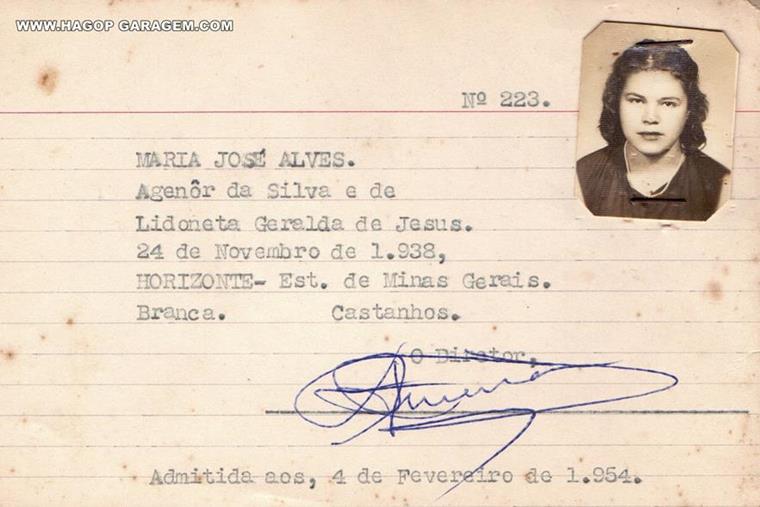 WWW.HAGOP GARAGEM.COM
Nº 223.
MARIA JOSÉ ALVES.
Agenôr da Silva e de
Lidoneta Geralda de Jesus.
24 de Novembro de 1.938,
HORIZONTE- Est. de Minas Gerais.
Branca. Castanhos.
O Diretor.
Admitida aos, 4 de Fevereiro de 1.954.